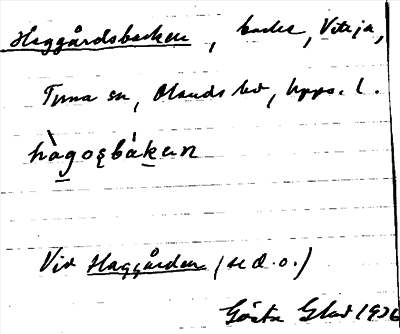 Haggårdsbacken, backe, Viteja,
Tuna sn, Olands hd, Upps. l.
hàgoṣbàkan
Vid Haggården (se d. o.)
Gösta Glad 1936